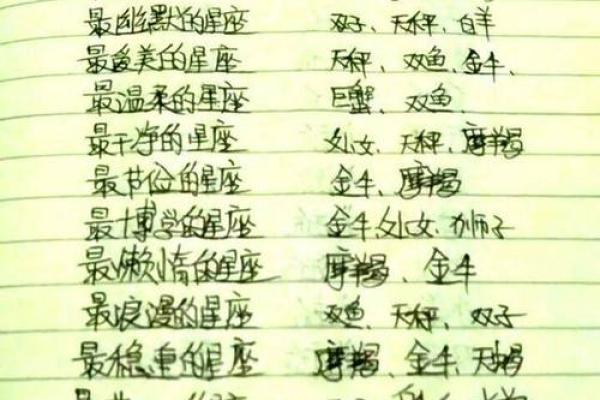 最幽默的星座 双子、天秤、白羊
最爱美的星座 天秤、双鱼、金牛、
最温柔的星座 巨蟹、双鱼
最干净的星座 处女、天秤、摩羯
最节俭的星座 金牛、摩羯
最博学的星座 金牛、处女、狮子
最懒惰的星座 摩羯、金牛
最浪漫的星座 双鱼、天秤、双子
最稳重的星座 摩羯、金牛、天蝎